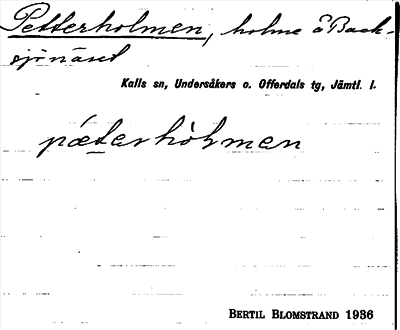 Petterholmen, holme å Back-
sjönäset
Kalls sn, Undersåkers o. Offerdals tg, Jämtl. l.
pæterhòlmen
BERTIL BLOMSTRAND 1936